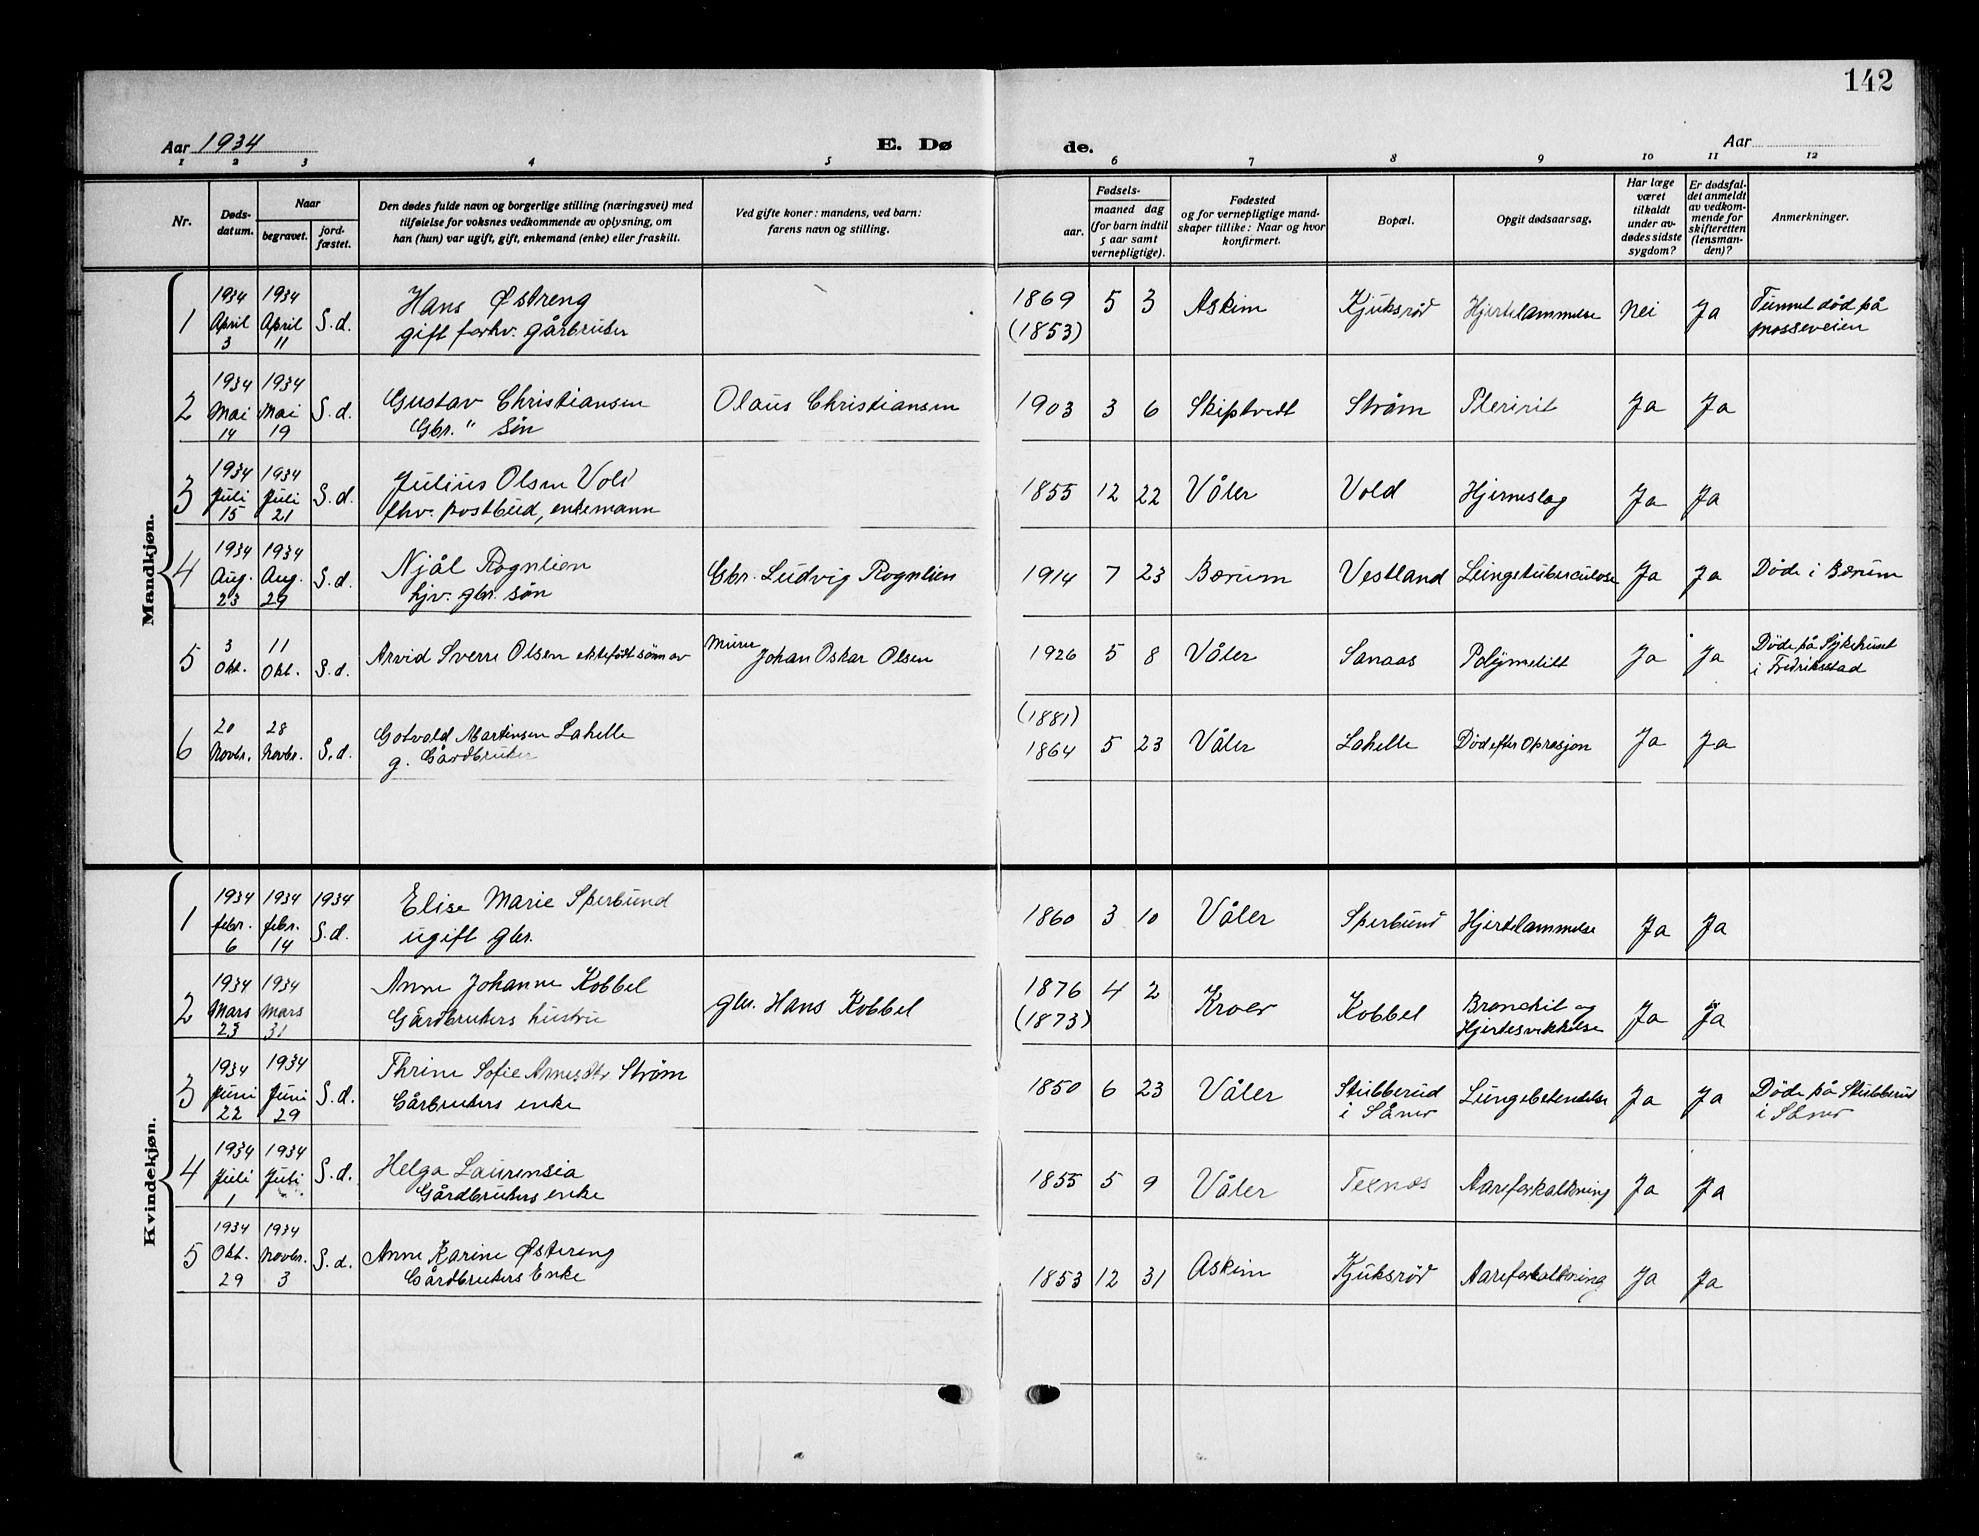 142
Aar 1934
E. Dø
de.
Aar
1 2 3 4 5 6 7 8 9 10 11 12
Nr.
Døds-
datum.
Naar
begravet.
jord-
fæstet.
Den dødes fulde navn og borgerlige stilling (næringsvei) med
tilføielse for voksnes vedkommende av oplysning, om
han (hun) var ugift, gift, enkemand (enke) eller fraskilt.
Ved gifte koner: mandens, ved barn:
farens navn og stilling.
Fødsels-
aar.
maaned dag
(for barn indtil
5 aar samt
vernepligtige).
Fødested
og for vernepligtige mand-
skaper tillike: Naar og hvor
konfirmert.
Bopæl.
Opgit dødsaarsag.
Har læge
været
tilkaldt
under av-
dødes sidste
sygdom?
Er dødsfal-
det anmeldt
av vedkom-
mende for
skifteretten
(lensman-
den)?
Anmerkninger.
Mandkjøn.
1 1934 April 3 1934 April 11 S.d. Hans Østreng
gift forhv. gårbruker
1869 (1853) 5 3 Askim Kjuksrød Hjertelammelse Nei Ja Funnet død på
mosseveien
2 1934 Mai 14 1934 Mai 19 S.d. Gustav Christiansen
Gbr. " søn
Olaus Christiansen 1903 3 6 Skiptvedt Strøm Pleririt Ja Ja
3 1934 Juli 15 1934 Juli 21 S.d. Julius Olsen Vold
fhv. postbud, enkemann
1855 12 22 Våler Vold Hjerneslag Ja Ja
4 1934 Aug. 23 1934 Aug. 29 S.d. Njål Rognlien
hjv. gbr. søn
Gbr. Ludvig Rognlien 1914 7 23 Bærum Vestland Lungetuberculose Ja Ja Døde i Bærum
5 3 Okt. 11 Okt. S.d. Arvid Sverre Olsen ektefødt sønn av
Murer Johan Oskar Olsen 1926 5 8 Våler Sanaas Polymelitt Ja Ja Døde på Sykehuset
i Fredriksstad
6 20 Novbr. 28 Novbr. S.d. Gotvald Martinsen Lahelle
g. Gårdbruker
(1881) 1864 5 23 Våler Lahelle Død efter Oprasjon Ja Ja
Kvindekjøn.
1 1934 febr. 6 1934 febr. 14 1934 S.d. Elise Marie Sperbund
ugift gbr.
1860 3 10 Våler Sperbund Hjertelammelse Ja Ja
2 1934 Mars 23 1934 Mars 31 Anne Johanne Kobbel
Gårdbrukers hustru
gbr. Hans Kobbel 1876 (1873) 4 2 Kroer Kobbel Bronchit og
Hjertesvekkelse Ja Ja
3 1934 Juni 22 1934 Juni 29 S.d. Thrine Sofie Arnesdtr Strøm
Gårbrukers enke
1850 6 23 Våler Stubberud
i Såner Lungebetendelse Ja Ja Døde på Stubberud
i Såner
4 1934 Juli 1 1934 Juli S.d. Helga Laurensia
Gårdbrukers enke
1855 5 9 Våler Texnes Aareforkalkning Ja Ja
5 1934 Okt. 29 1934 Novbr. 3 S.d. Anne Karine Østereng
Gårdbrukers Enke
1853 12 31 Askim Kjuksrød Aareforkalkning Ja Ja